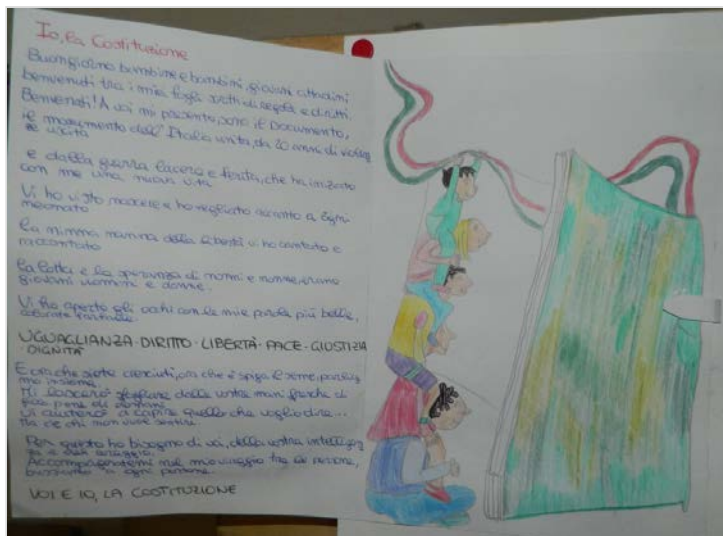 Io, la Costituzione
Buongiorno bambine e bambini, giovani cittadini
benvenuti tra i miei fogli scritti di regole e diritti.
Benvenuti! A voi mi presento, sono il Documento,
il monumento dell'Italia unita, da 20 anni di
è uscita
e dalla guerra lacera e ferita, che ha iniziato
con me una nuova vita
Vi ho visto nascere e ho vegliato accanto a ogni
neonato
la ninna nanna della libertà vi ho cantato e
raccontato
la lotta e la speranza di nonni e nonne, erano
giovani uomini e donne.
Vi ho aperto gli occhi con le mie parole più belle,
UGUAGLIANZA · DIRITTO · LIBERTÀ · PACE · GIUSTIZIA
· DIGNITÀ
E ora che siete cresciuti, ora che è spiga il seme,
mo insieme.
Mi lascerò sfogliare dalle vostre mani fresche
Vi aiuterò a capire quello che voglio dire...
chi non vuole sentire
Per questo ho bisogno di voi, della vostra
Accompagnatemi nel mio viaggio tra le persone,
bussiamo a ogni
VOI E IO, LA COSTITUZIONE